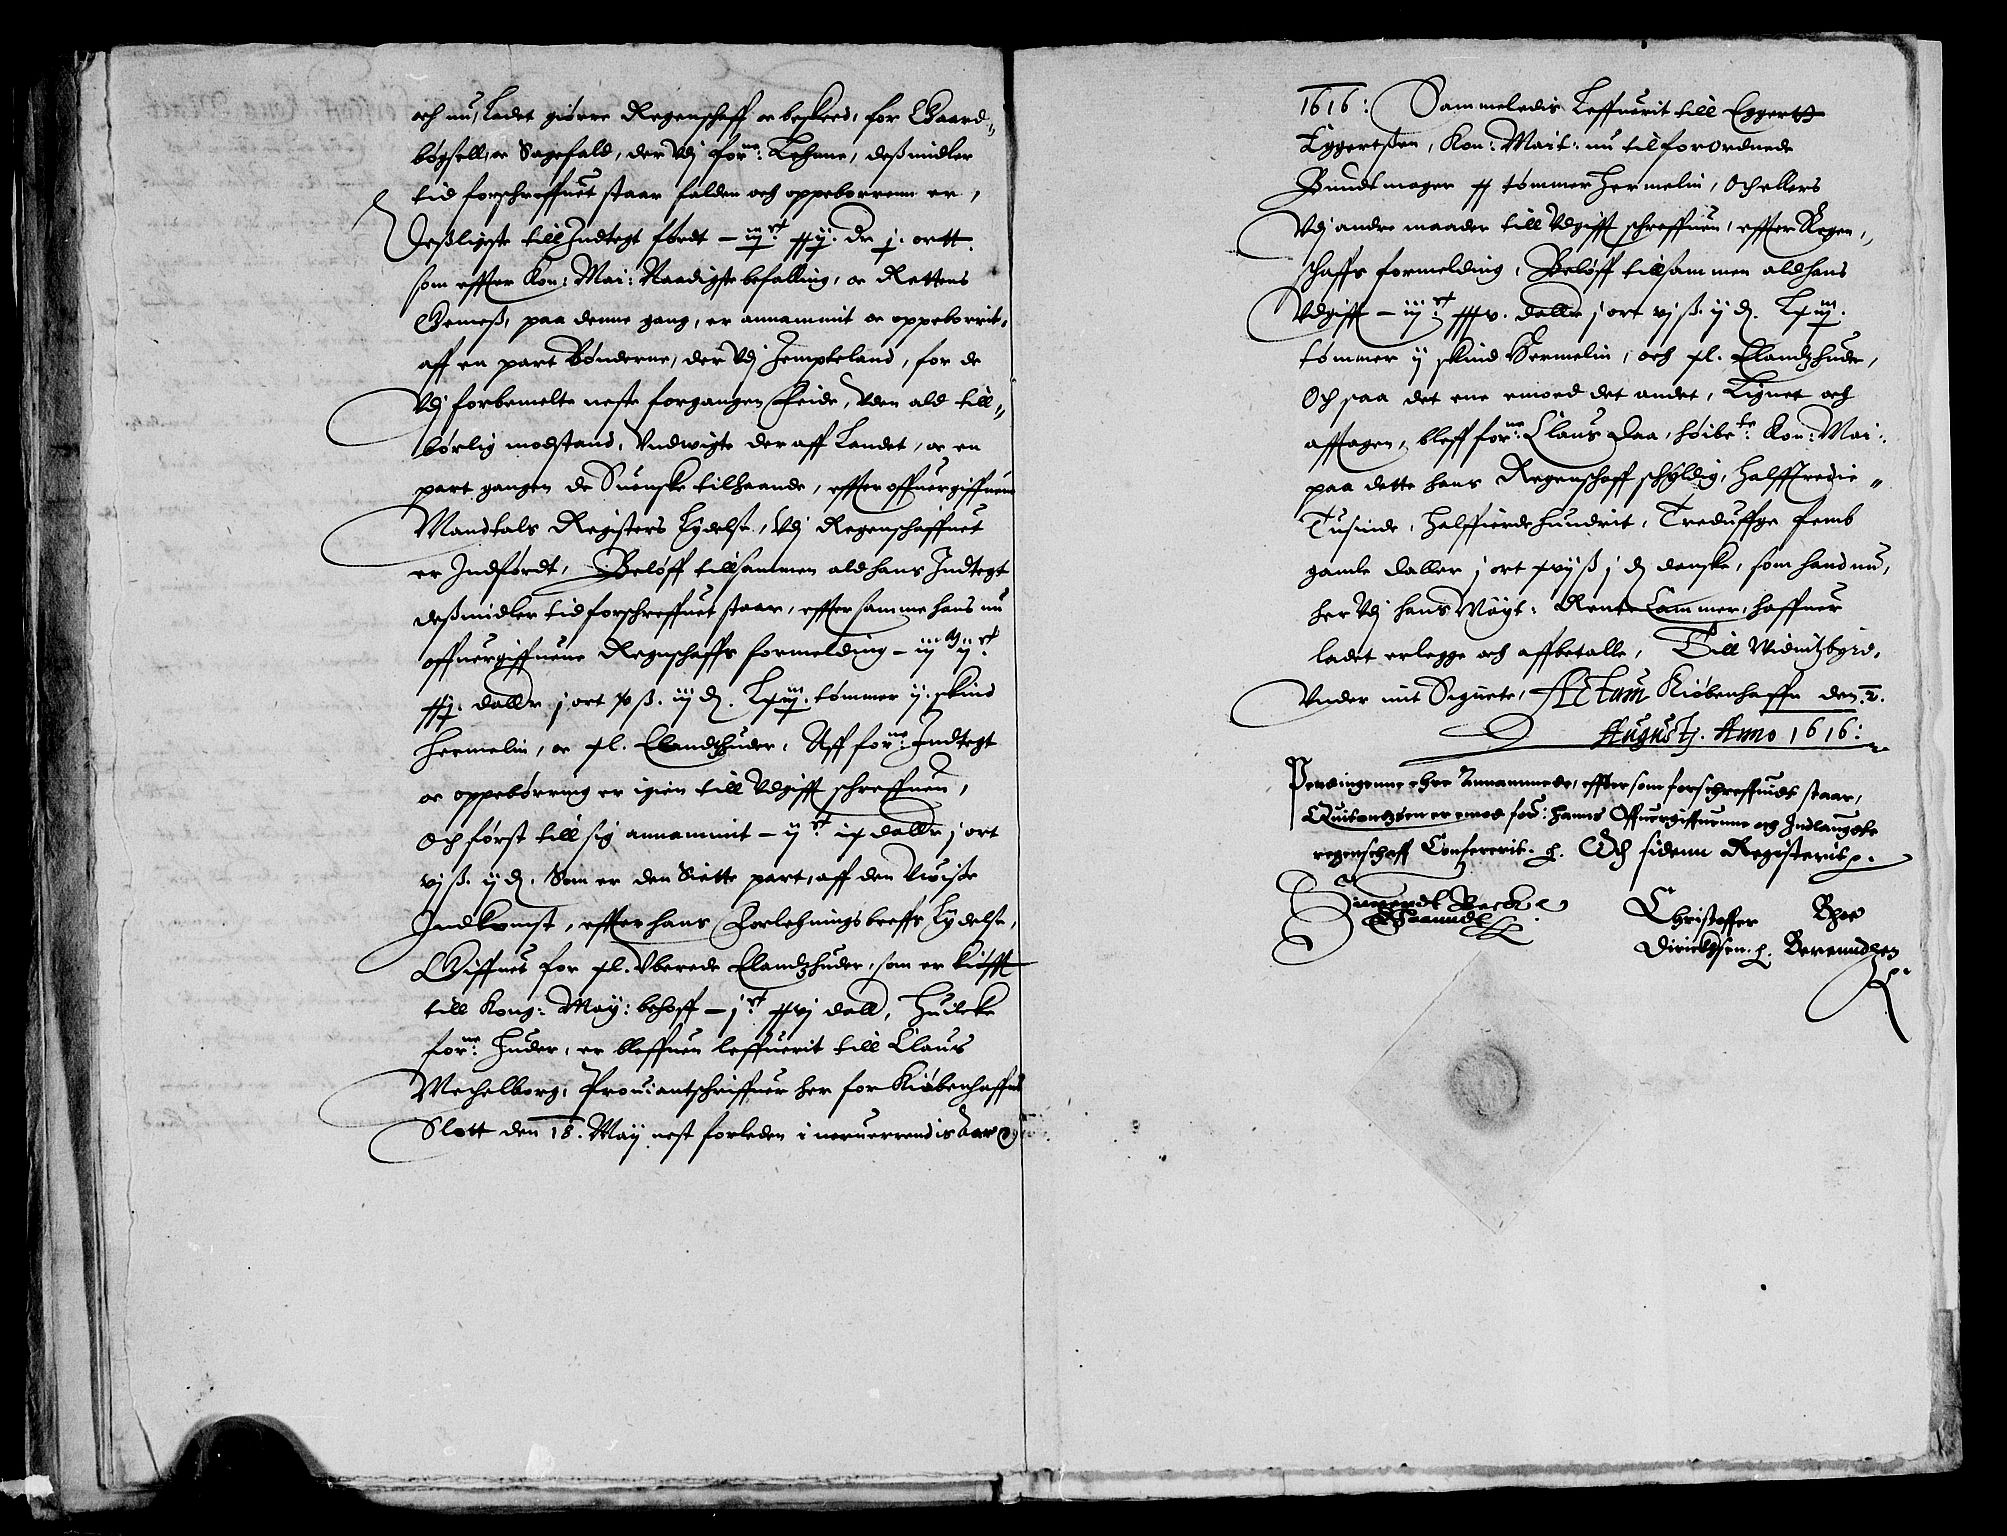 och nu, Ladet giørre Regenschaff oc beskeed, for Gaard„
bøgsell, oc Sagefald, der Vdj forne: Lehnne, deßmidler
tid forschreffuet staar falden och oppeborrenn er,
Deßligeste till Indtegt ført –
som effter Kon: Mai: Naadigste befalling, oc Rettens
Gemeß, paa denne gang, er annammit oc oppeborrit,
aff en part Bønderne, der Vdj Jempteland, for de
Vdj forbemelte neste forgangen Feide, Vden ald till„
børlig modstand, Vndwigte der aff Landet, oc en
part gangen de Suenske tilhaande, effter offuergiffuenn
Mandtals Registers Lydelse, Vdj Regenschaffuet
er Indførdt, Beløff tillsammen ald hans Indtegt
deßmidler tid forschreffuet staar, effter samme hans nu
offuergiffuene Regnschaffs formelding – iij M ij ct
dallr j ort xv ß. iij d. Lxiij. tømmer ij skind
Hermelin, oc xl. Elandzhuder, Aff forne: Indtegt
oc oppebørring er igien till Vdgifft schreffuen,
Och først till sig annammit – ij ct ix dallr j ort
vj ß. ij d. Som er den Siette part, aff den Visse
Indkomst, effter hans Forlehningsbreffs Lydelse,
Giffues for xl. Vberede Elandzhuder, som er kiøfft
till Kong: May: behoff – j ct xxvj dall, Huilcke
forne: Huder, er bleffuen leffuerit till Claus
Mechelborg, Prouiantschriffuer her for Kiøbenhaffns
Slott den 18. Maij nest forleden i neruerrendis Aar
1616: Sammeledis Leffuerit till Eggertt
Eggertßen, Kon: Mait: nu tilforordnede
Bundtmager xx tømmer Hermelin, Och ellers
Vdj andre maader till Vdgifft schreffuen, effter Regen„
schaffs formelding, Beløff tillsammen ald hans
Vdgifft – iij ct xxxv. dallr j ort vj ß. ij d. Lxiij.
tømmer ij skind Hermelin, och xl. Elandzhude,
Och saa det ene emoed det andet, Lignet och
afftagen, bleff forne: Claus Daa, høibete: Kon: Mai:
paa dette hans Regenschaff schyldig, Halfftredie„
Tusinde, Halffierdehundrit, Treduffge femb
gamle daller j ort xvij ß j d danske, som hand nu,
her Vdj hans Mayt: RenteCammer, haffuer
ladet erlegge och affbetalle, Till Widnitzbyrd,
Vnder mit Signete, Actum Kiøbenhaffn den 2.
Augustj. Anno 1616:
Pendingenne ehre Annammede, effter som forschreffuidt staar,
Quitantzen er emod for: hanns Offuergiffuenne och Indlaugde
regenschaff Confererit. Och sidenn Registerit.
Siuerdt Beck
Christoffer
Dirichsen.
Bhoe
Berenndsen